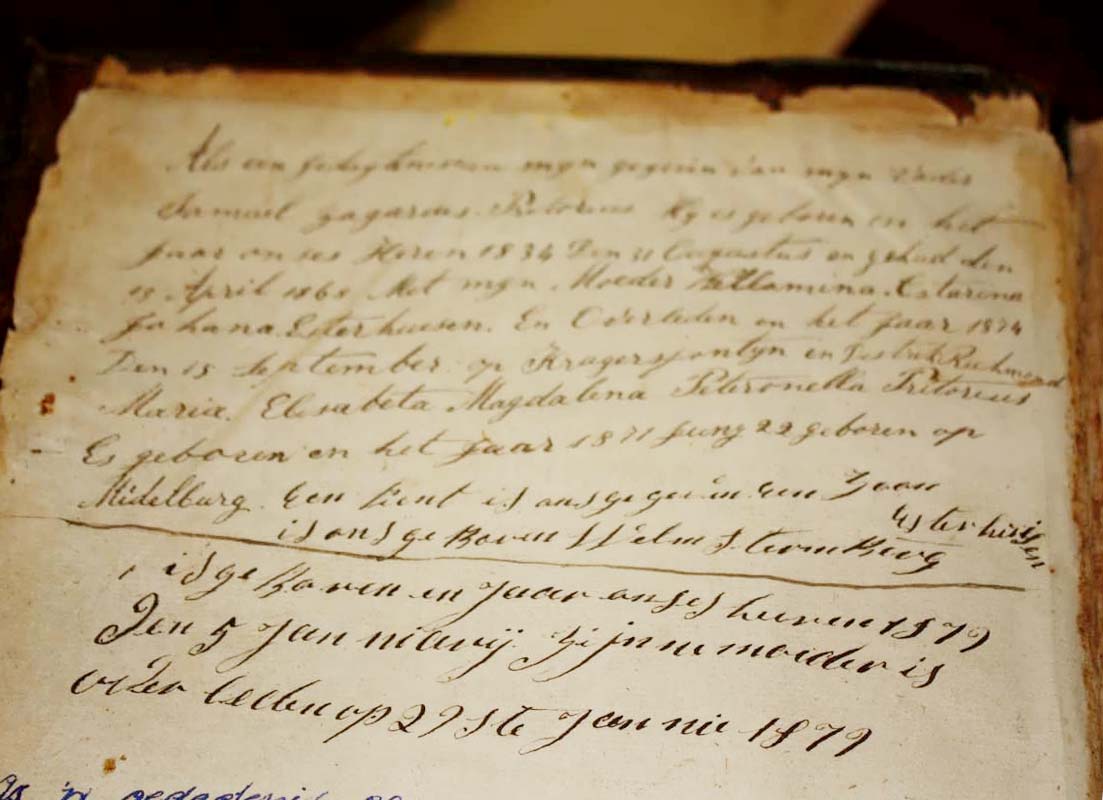 Als een gedagtenis van myn gegeven van myn Vader
Samuel Zagarias Pretorius Hy is geboren in het
Jaar onses Heren 1834 Den 11 Augustus en gehad den
15 April 1868 Met myn Moeder Catarina
Johana Esterhuesen. En Overleden in het Jaar 1874
Den 15 September op en Distrik Richmond
Maria. Elisabeta Magdalena Petronella Pretorius
Es geboren en het Jaar 1871 Juny 22 geboren op
Midelburg. Een Kent is ons gegeven Een Zoon
is ons geboren Esterhuisen
is geboren en Jaar onses heeren 1879
Den 5 Janniewij. Zijn ne moeder is
over leden op 29 ste Jannie 1879